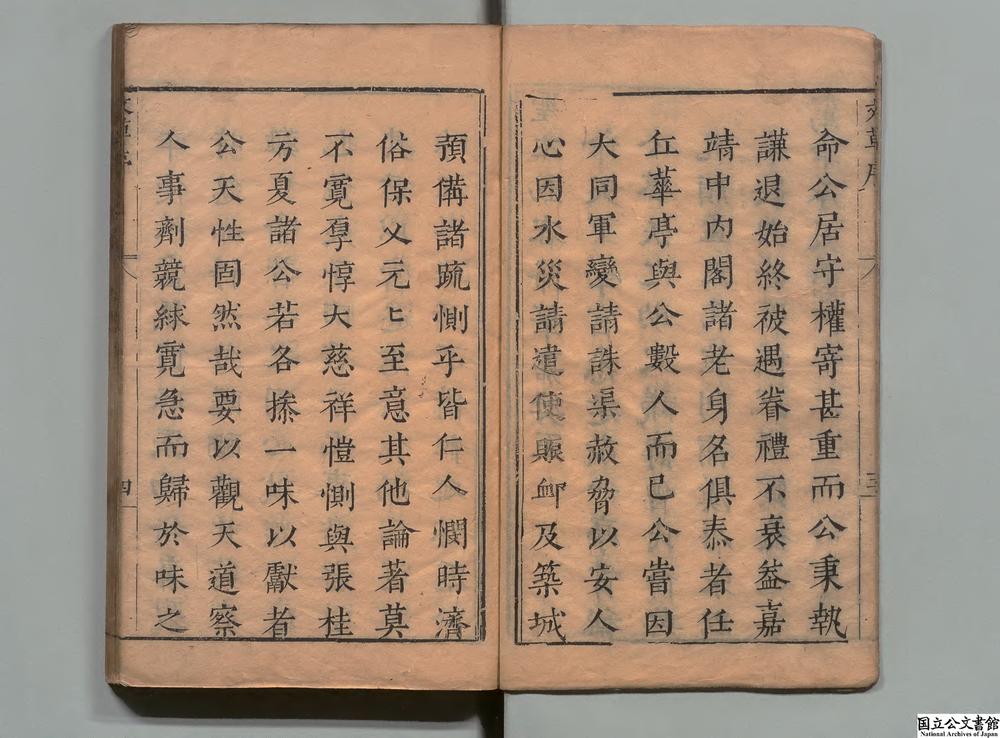 命公居守權寄甚重而公秉執
謙退始終被遇眷禮不衰葢嘉
靖中內閣諸老身名俱泰者任
丘華亭與公數人而已公嘗因
大同軍變請誅渠赦脅以安人
心因水災請遣使賑䘏及築城
預備諸疏惻乎皆仁人憫時濟
俗保乂元匕至意其他論著莫
不寬厚惇大慈祥愷惻與張桂
方夏諸公若各摻一味以獻者
公天性固然哉要以觀天道察
人事劑競絿寬急而歸於味之
三
四
国立公文書館
National Archives of Japan